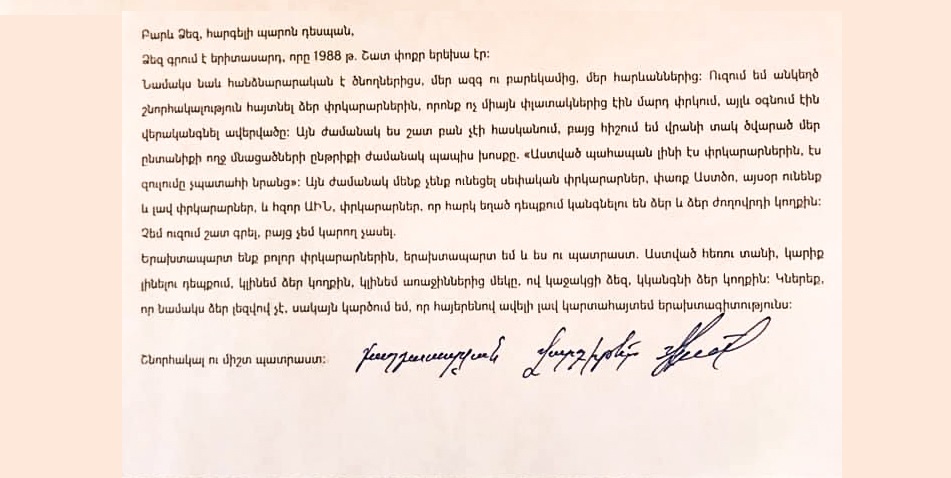 Բարև Ձեզ, հարգելի պարոն դեսպան,
Ձեզ գրում է երիտասարդ, որը 1988 թ. Շատ փոքր երեխա էր:
Նամակս նաև հանձնարարական է ծնողներիցս, մեր ազգ ու բարեկամից, մեր հարևաններից: Ուզում եմ անկեղծ
շնորհակալություն հայտնել ձեր փրկարարներին, որոնք ոչ միայն փլատակներից էին մարդ փրկում, այլև օգնում էին
վերականգնել ավերվածը: Այն ժամանակ ես շատ բան չէի հասկանում, բայց հիշում եմ վրանի տակ ծվարած մեր
ընտանիքի ողջ մնացածների ընթրիքի ժամանակ պապիս խոսքը. «Աստված պահապան լինի էս փրկարարներին, էս
գուլումը չպատահի նրանց»: Այն ժամանակ մենք չենք ունեցել սեփական փրկարարներ, փառք Աստծո, այսօր ունենք
և լավ փրկարարներ, և հզոր ԱԻՆ, փրկարարներ, որ հարկ եղած դեպքում կանգնելու են ձեր և ձեր ժողովրդի կողքին:
Չեմ ուզում շատ գրել, բայց չեմ կարող չասել.
Երախտապարտ ենք բոլոր փրկարարներին, երախտապարտ եմ և ես ու պատրաստ. Աստված հեռու տանի, կարիք
լինելու դեպքում, կլինեմ ձեր կողքին, կլինեմ առաջիններից մեկը, ով կաջակցի ձեզ, կկանգնի ձեր կողքին: Կներեք,
որ նամակս ձեր լեզվով չէ, սակայն կարծում եմ, որ հայերենով ավելի լավ կարտահայտեմ երախտագիտությունս:
Շնորհակալ ու միշտ պատրաստ: